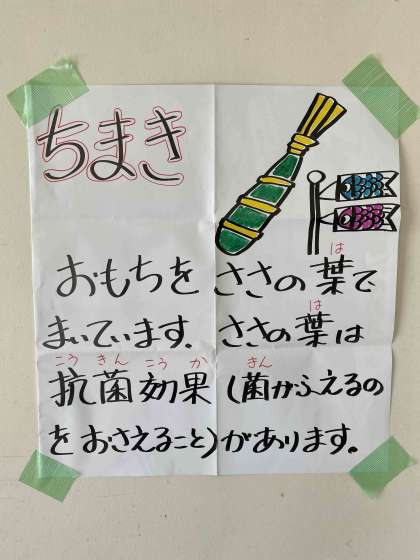 ちまき
は
おもちをささの葉で
は
まいています。ささの葉は
こうきんこうか きん
抗菌効果(菌がふえるの
をおさえること)があります。